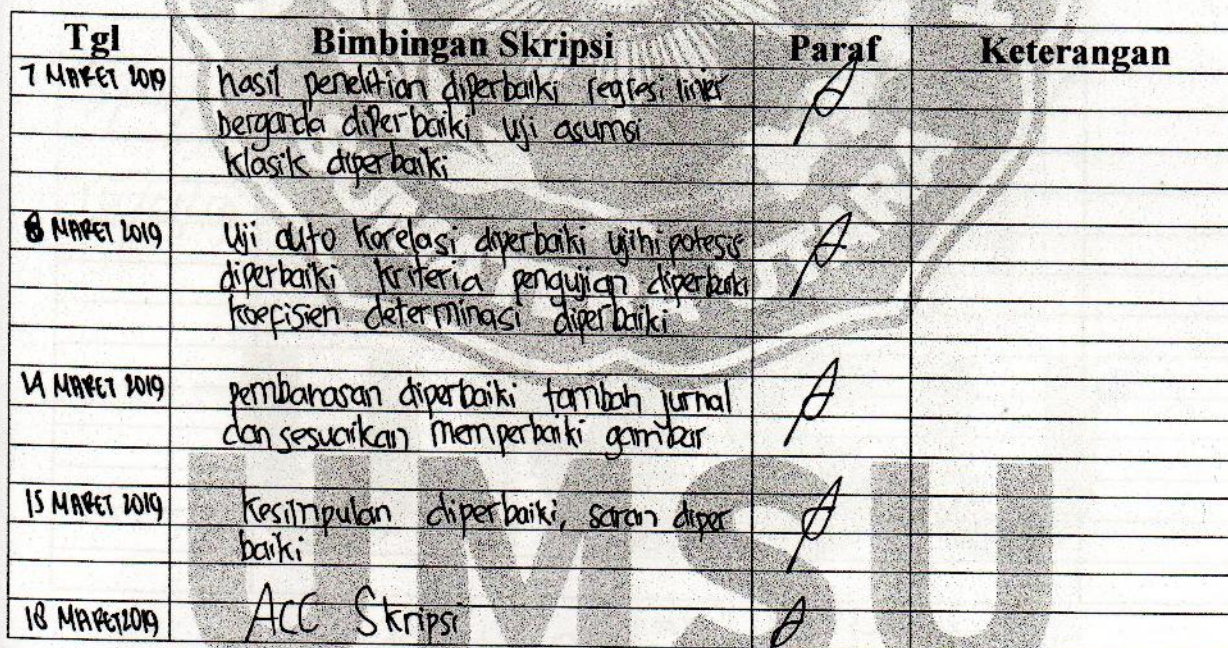 Tgl Bimbingan Skripsi Paraf Keterangan
7 MARET 2019 hasil penelitian diperbaiki regresi linier
berganda diperbaiki uji asumsi
klasik diperbaiki
8 MARET 2019 Uji auto korelasi diperbaiki uji hipotesis
diperbaiki kriteria pengujian diperbaiki
koefisien determinasi diperbaiki
14 MARET 2019 pembahasan diperbaiki tambah jurnal
dan sesuaikan memperbaiki gambar
15 MARET 2019 Kesimpulan diperbaiki, saran diper
baiki
18 MARET 2019 ACC Skripsi
UMSU